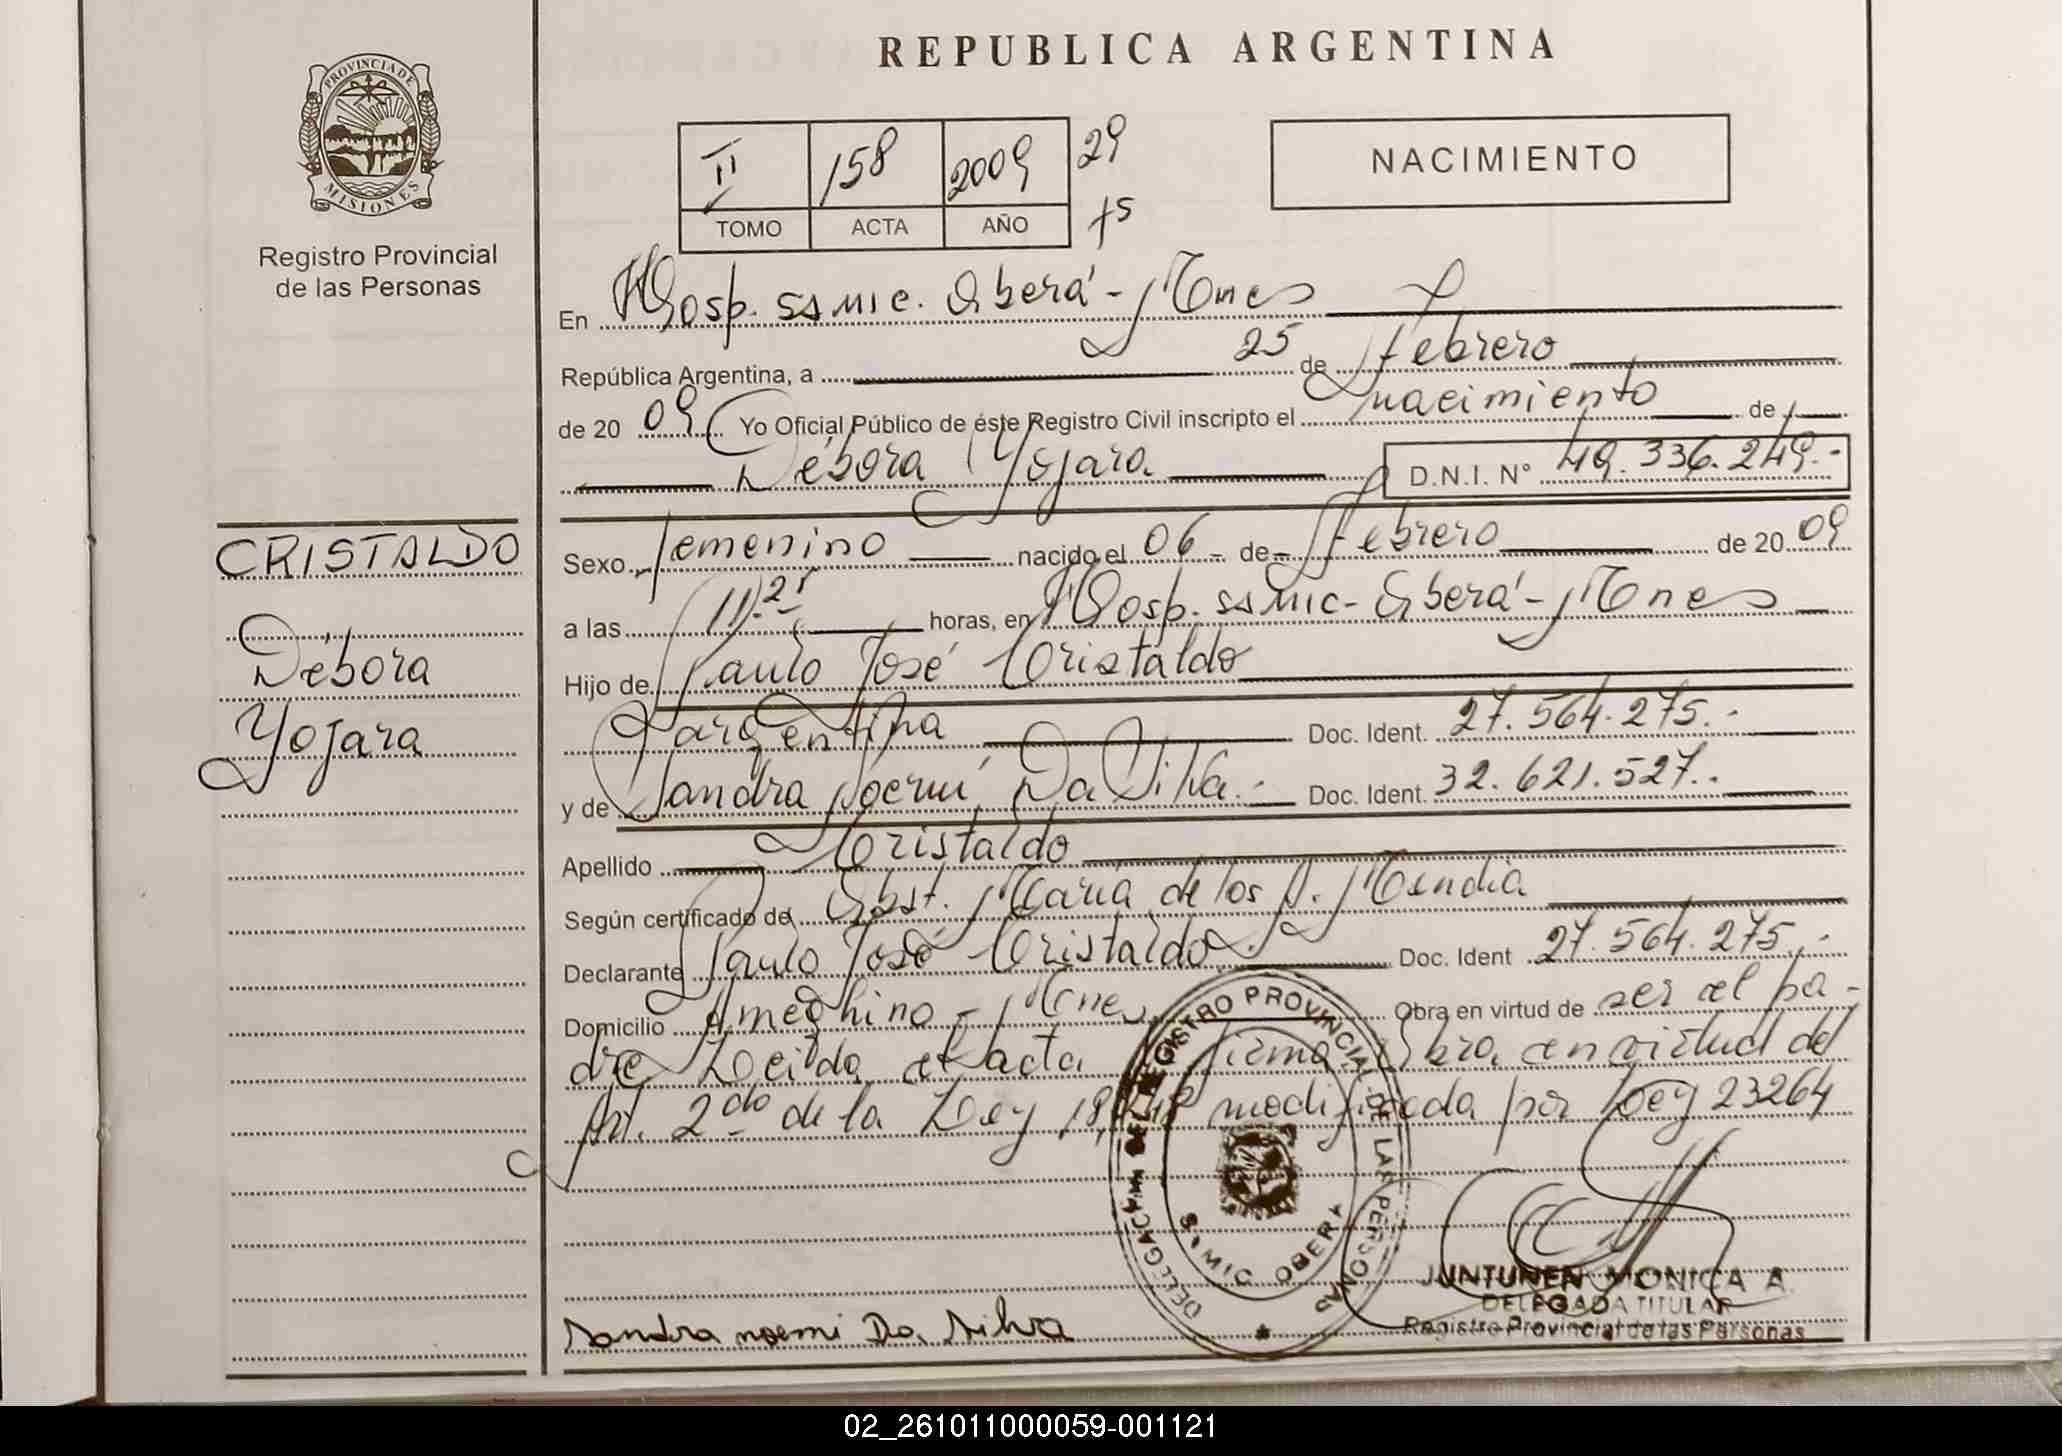 REPUBLICA ARGENTINA
PROVINCIA DE
MISIONES
Registro Provincial
de las Personas
II 158 2009 29
TOMO ACTA AÑO 15
NACIMIENTO
En Hosp. SAMIC. Oberá - Mnes
República Argentina, a 25 de febrero
de 2009 Yo Oficial Público de éste Registro Civil inscripto el nacimiento de
Débora Yojara D.N.I. N° 49.336.249.-
CRISTALDO
Débora
Yojara
Sexo femenino nacido el 06 - de - febrero de 2009
a las 11,21 horas, en Hosp. SAMIC - Oberá - Mnes
Hijo de Paulo José Cristaldo
argentina Doc. Ident. 27.564.275.-
y de Sandra Noemí Da Silva.- Doc. Ident. 32.621.527.-
Apellido Cristaldo
Según certificado de Obst. María de los A. Mendia
Declarante Paulo José Cristaldo Doc. Ident 27.564.275.-
Domicilio Ameghino - Mnes Obra en virtud de ser el pa-
dre Leída el acta firma Obra en virtud del
Art. 2do de la Ley 18.248 modificada por Ley 23264
DELEGACIÓN DEL REGISTRO PROVINCIAL DE LAS PERSONAS
SAMIC OBERA
Sandra noemi Da Silva
JUNTUNEN MONICA A.
DELEGADA TITULAR
Registro Provincial de las Personas
02_261011000059-001121